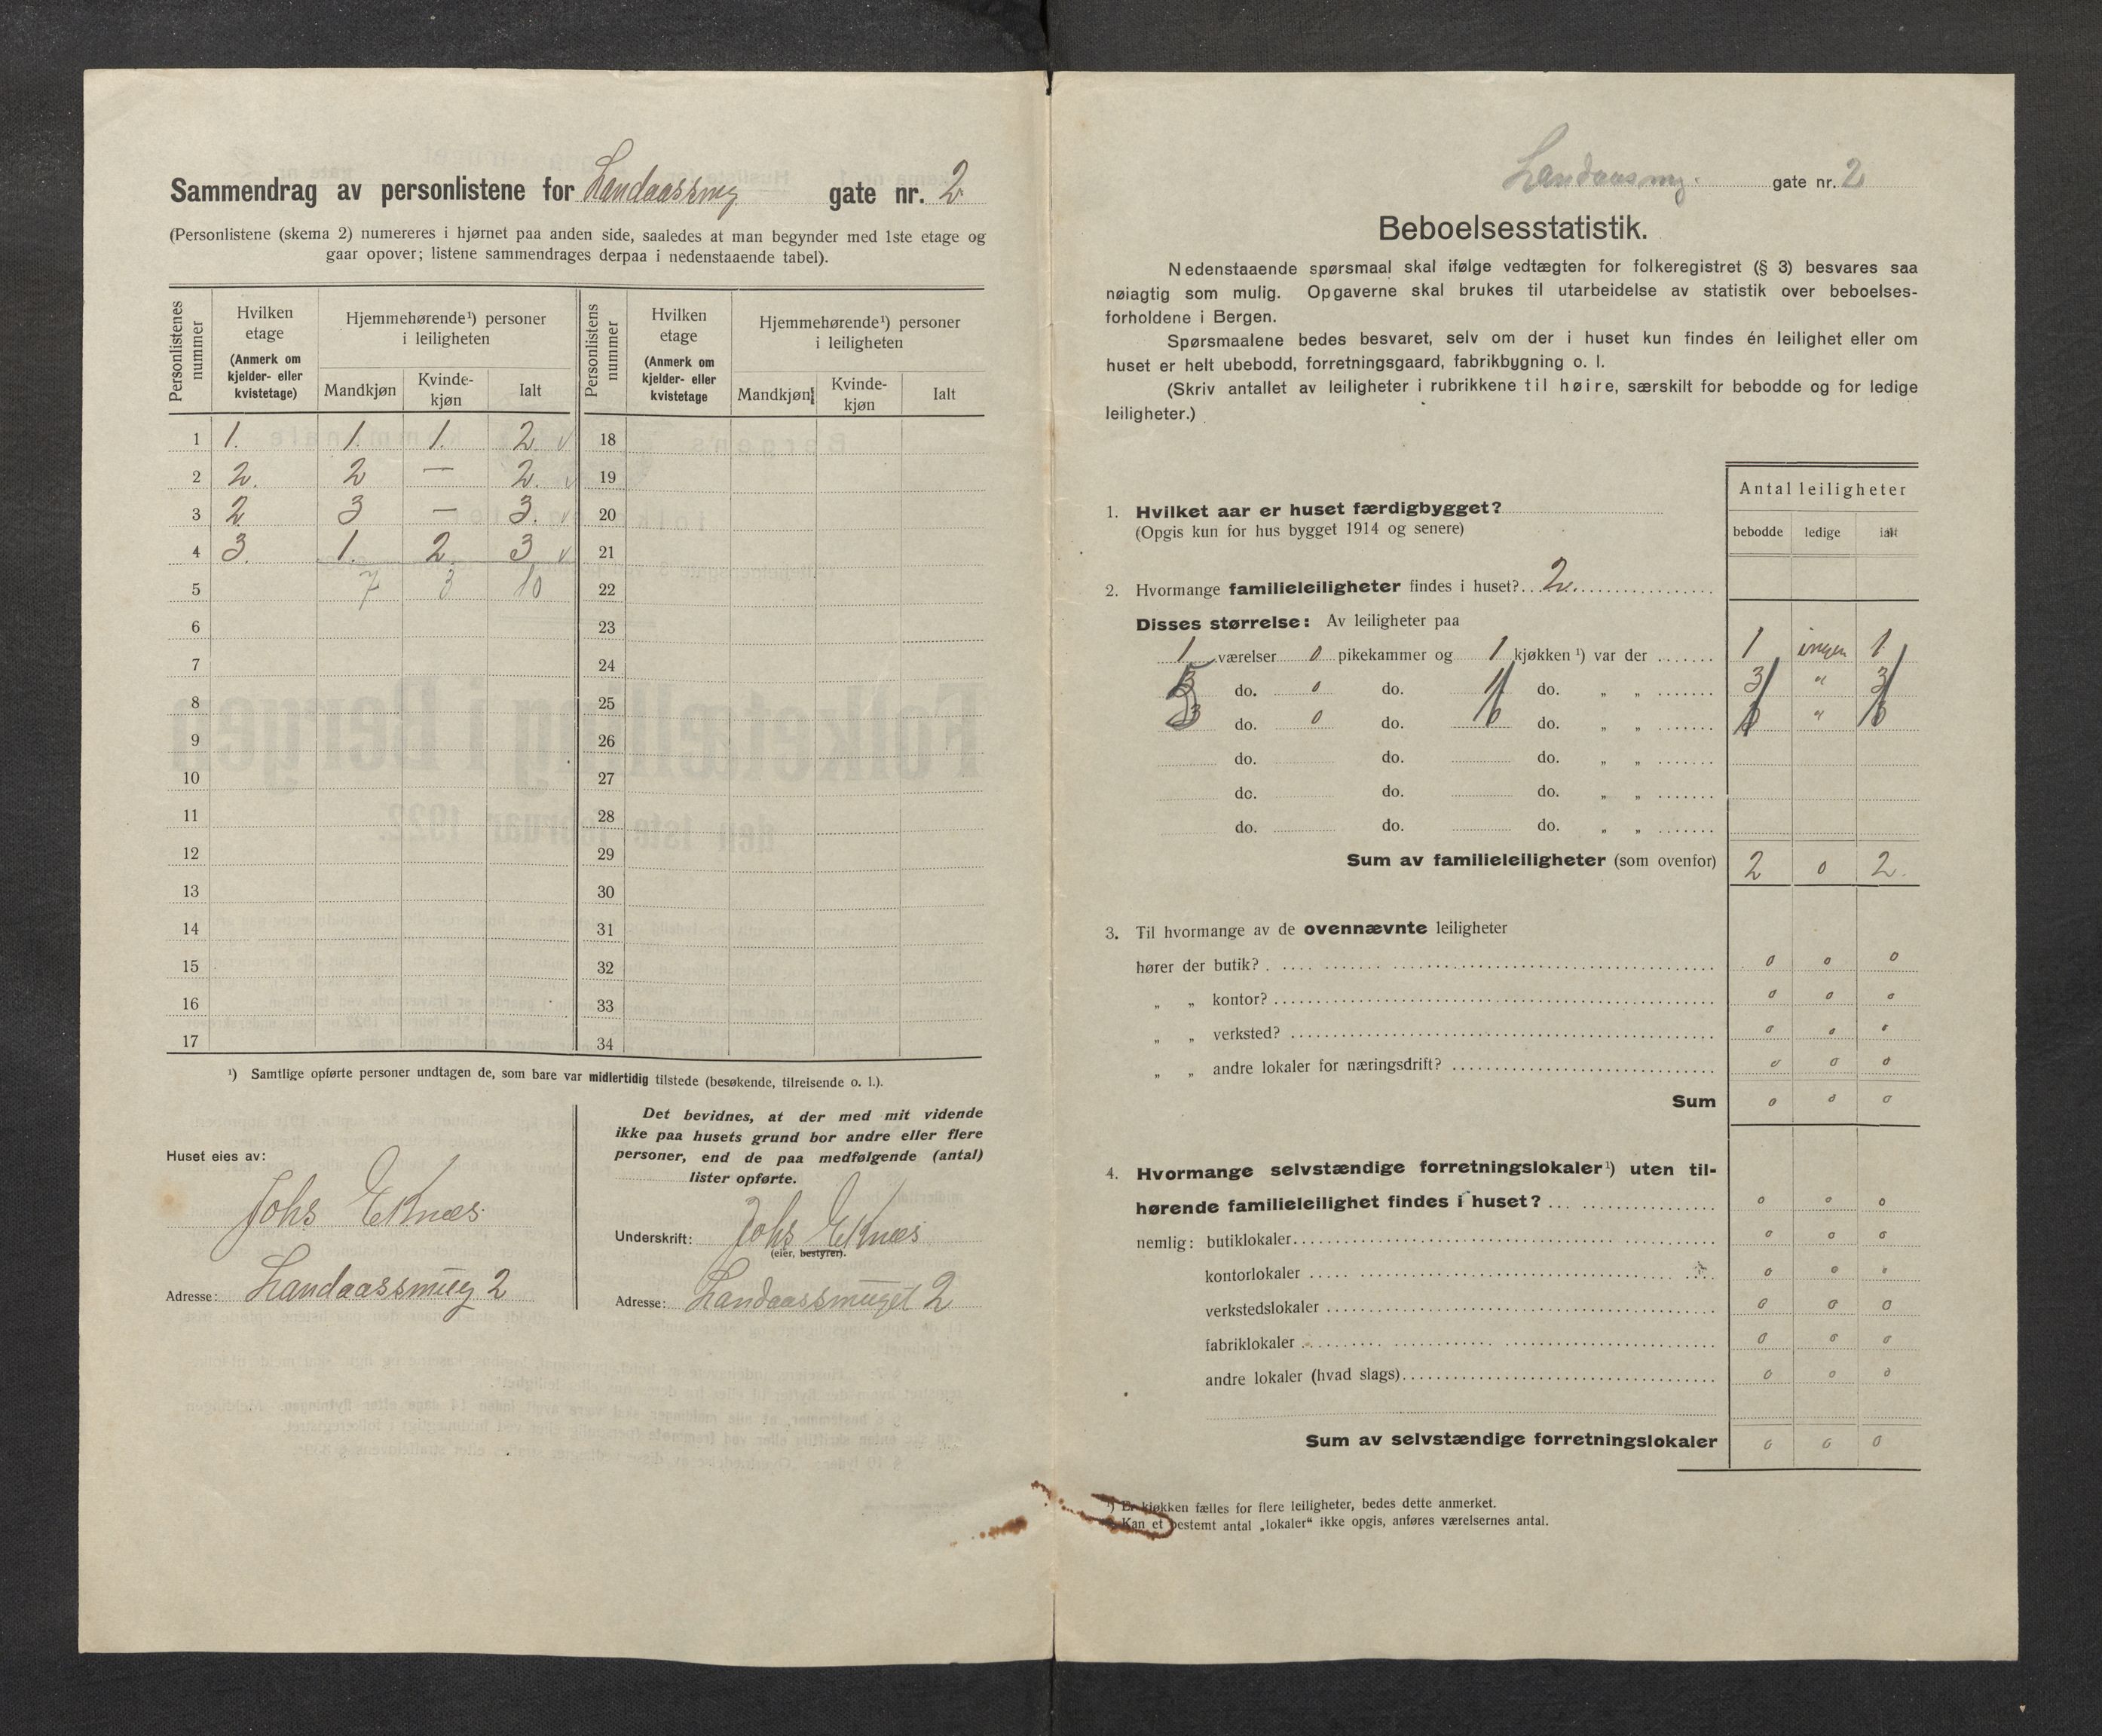 Sammendrag av personlistene for Landaassmg gate nr. 2
(Personlistene (skema 2) numereres i hjørnet paa anden side, saaledes at man begynder med 1ste etage og
gaar opover; listene sammendrages derpaa i nedenstaaende tabel).
Personlistenes nummer | Hvilken etage (Anmerk om kjelder- eller kvistetage) | Hjemmehørende¹) personer i leiligheten | Mandkjøn | Kvinde-kjøn | Ialt
Personlistens nummer | Hvilken etage (Anmerk om kjelder- eller kvistetage | Hjemmehørende¹) personer i leiligheten | Mandkjøn | Kvinde-kjøn | Ialt
1 1. 1 1. 2 v 18
2 2. 2 — 2. v 19
3 2 3 — 3. v 20
4 3. 1. 2. 3 v 21
5 7 3 10 22
6 23
7 24
8 25
9 26
10 27
11 28
12 29
13 30
14 31
15 32
16 33
17 34
¹) Samtlige opførte personer undtagen de, som bare var midlertidig tilstede (besøkende, tilreisende o. l.).
Huset eies av:
Johs Eknæs
Adresse: Landaassmug 2
Det bevidnes, at der med mit vidende
ikke paa husets grund bor andre eller flere
personer, end de paa medfølgende (antal)
lister opførte.
Underskrift: Johs Eknæs
(eier, bestyrer).
Adresse: Landaassmuget 2
Landaasmg. gate nr. 2
Beboelsesstatistik.
Nedenstaaende spørsmaal skal ifølge vedtægten for folkeregistret (§ 3) besvares saa
nøiagtig som mulig. Opgaverne skal brukes til utarbeidelse av statistik over beboelses-
forholdene i Bergen.
Spørsmaalene bedes besvaret, selv om der i huset kun findes én leilighet eller om
huset er helt ubebodd, forretningsgaard, fabrikbygning o. l.
(Skriv antallet av leiligheter i rubrikkene til høire, særskilt for bebodde og for ledige
leiligheter.)
Antal leiligheter
bebodde ledige ialt
1. Hvilket aar er huset færdigbygget?
(Opgis kun for hus bygget 1914 og senere)
2. Hvormange familieleiligheter findes i huset? 2.
Disses størrelse: Av leiligheter paa
1 værelser 0 pikekammer og 1 kjøkken ¹) var der 1 ingen 1
do. 0 do. do. „ „ 3 " 3
do. 0 do. do. „ „ "
do. do. do. „ „
do. do. do. „ „
do. do. do. „ „
Sum av familieleiligheter (som ovenfor) 2 0 2.
3. Til hvormange av de ovennævnte leiligheter
hører der butik? 0 0 0
„ „ kontor? 0 0 0
„ „ verksted? 0 0 0
„ „ andre lokaler for næringsdrift? 0 0 0
Sum 0 0 0
4. Hvormange selvstændige forretningslokaler¹) uten til-
hørende familieleilighet findes i huset? 0 0 0
nemlig: butiklokaler 0 0 0
kontorlokaler 0 0 0
verkstedslokaler 0 0 0
fabriklokaler 0 0 0
andre lokaler (hvad slags) 0 0 0
Sum av selvstændige forretningslokaler 0 0 0
¹) Er kjøkken fælles for flere leiligheter, bedes dette anmerket.
Kan et bestemt antal „lokaler“ ikke opgis, anføres værelsernes antal.